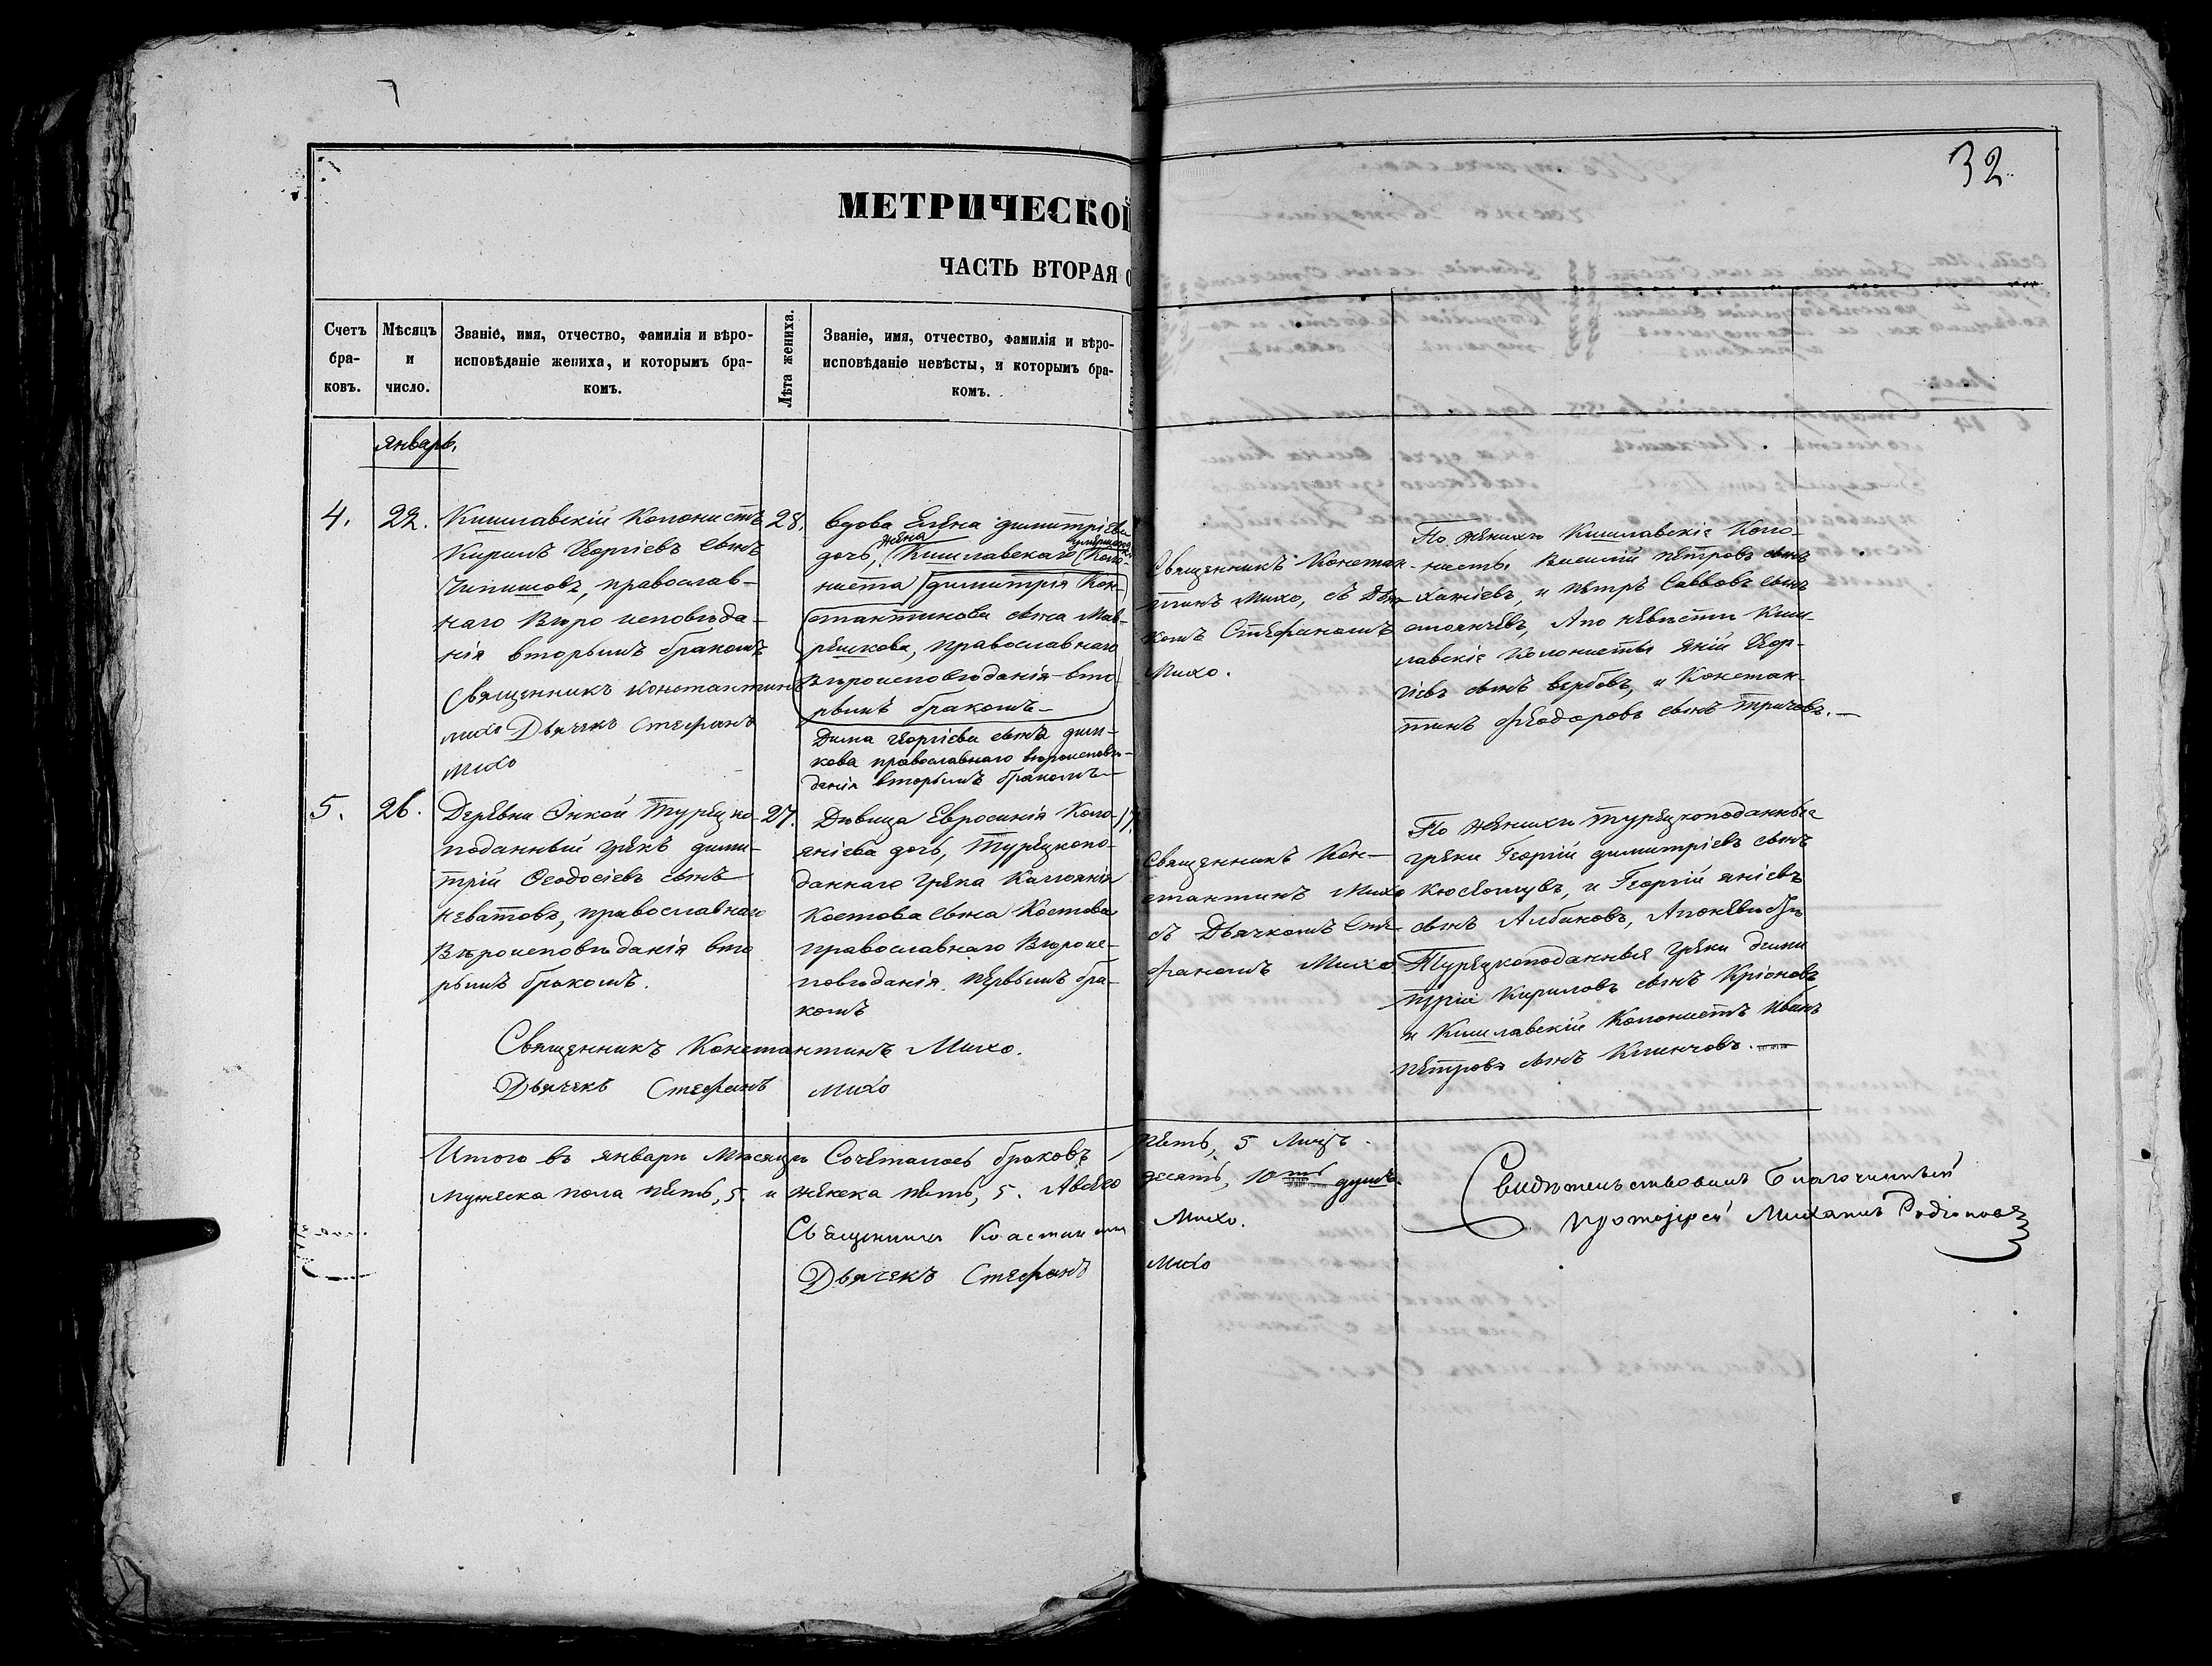 32
МЕТРИЧЕСКОЙ
ЧАСТЬ ВТОРАЯ О
Счетъ бра-ковъ.
Мѣсяцъ и число.
Званіе, имя, отчество, фамилія и вѣро-
исповѣданіе жениха, и которымъ бра-
комъ.
Лѣта жениха.
Званіе, имя, отчество, фамилія и вѣро-
исповѣданіе невѣсты, и которымъ бра-
комъ.
январь.
4.
22.
Кишлавскій Колонистъ
Кирилъ Георгіевъ сынъ
Чипишовъ, православ-
наго Вѣро исповѣда-
нія вторымъ бракомъ
Священникъ Константинъ
михо Дьячекъ Стефанъ
михо
28.
вдова Елена димитріева
жена умершаго
дочь, Кишлавскаго Коло-
ниста димитрія Кон-
стантинова сына Мав-
решкова, православнаго
вѣроисповѣданія вто-
рымъ бракомъ
Дима Георгіева сынъ дим-
кова православнаго вѣроисповѣ-
данія вторымъ бракомъ
Священникъ Констан-
тинъ Михо, съ Дьяч-
комъ Стефаномъ
Михо.
По жениху Кишлавскіе Коло-
нисты Василій Петровъ сынъ
Ханіевъ, и Петръ Саввовъ сынъ
стоянчевъ, А по невѣсти Киш-
лавскіе Колонисты Яній Геор-
гіевъ сынъ вербовъ, и Констан-
тинъ Феодоровъ сынъ Тричовъ.
5.
26.
Деревни Онкой Турецко-
поданный грекъ дими-
трій Феодосіевъ сынъ
Неватовъ, православнаго
Вѣроисповѣданія вто
рымъ бракомъ.
27.
Дѣвица Евросинія Кало-
яніева дочь, Турецкопо-
даннаго грека Калоянія
Костова сына Костова
православнаго Вѣроис-
повѣданія первымъ бра-
комъ
17.
Священникъ Кон-
стантинъ Михо
съ Дьячкомъ Сте-
фаномъ Михо
По жениху турецкоподанные
греки Георгій димитріевъ сынъ
и Георгій яніевъ
сынъ Албановъ, А по невѣсты
Турецкоподанные греки дими
трій Кириловъ сынъ Кріоновъ
и Кишлавскій Колонистъ Иванъ
Петровъ сынъ Клинчовъ.
Священникъ Константинъ Михо.
Дьячекъ Стефанъ михо
Итого въ январи Мѣсяцѣ Сочеталось браковъ пять, 5 Лицъ
мужеска пола пять, 5. и женска пять, 5. А всего десять, 10ть душъ.
Священникъ Константинъ Михо.
Дьячекъ Стефанъ михо
Свидѣтельствовалъ Благочинный
протоіерей Михаилъ Родіоновъ